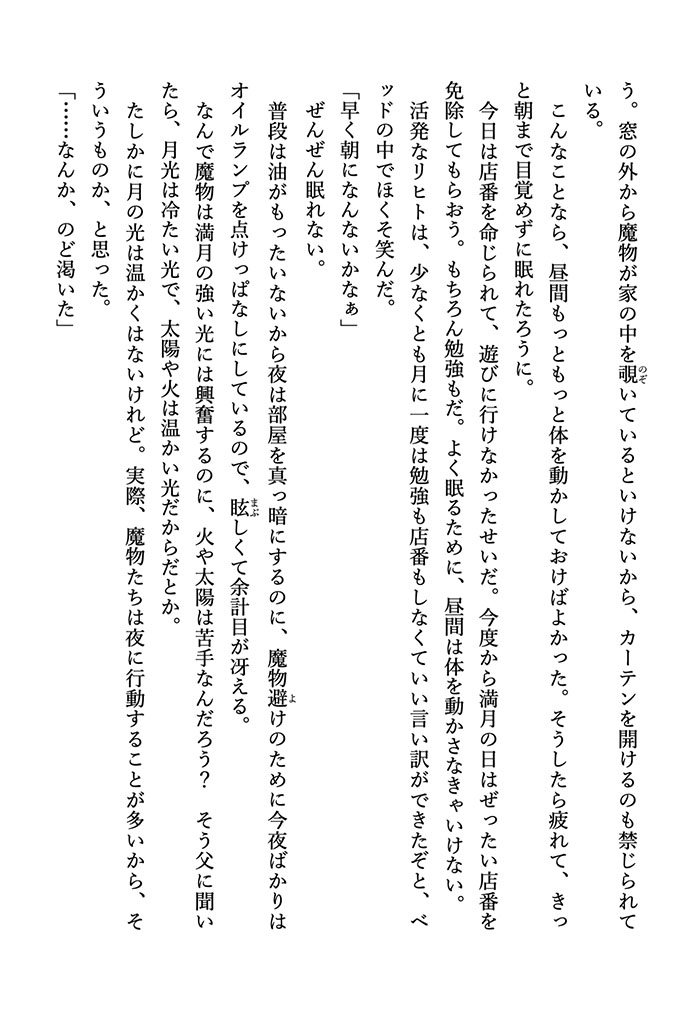 う。窓の外から魔物が家の中を覗いているといけないから、カーテンを開けるのも禁じられて
いる。
　こんなことなら、昼間もっともっと体を動かしておけばよかった。そうしたら疲れて、きっ
と朝まで目覚めずに眠れたろうに。
　今日は店番を命じられて、遊びに行けなかったせいだ。今度から満月の日はぜったい店番を
免除してもらおう。もちろん勉強もだ。よく眠るために、昼間は体を動かさなきゃいけない。
　活発なリヒトは、少なくとも月に一度は勉強も店番もしなくていい言い訳ができたぞと、ベ
ッドの中でほくそ笑んだ。
「早く朝になんないかなぁ」
　ぜんぜん眠れない。
　普段は油がもったいないから夜は部屋を真っ暗にするのに、魔物避けのために今夜ばかりは
オイルランプを点けっぱなしにしているので、眩しくて余計目が冴える。
　なんで魔物は満月の強い光には興奮するのに、火や太陽は苦手なんだろう？　そう父に聞い
たら、月光は冷たい光で、太陽や火は温かい光だからだとか。
　たしかに月の光は温かくはないけれど。実際、魔物たちは夜に行動することが多いから、そ
ういうものか、と思った。
「……なんか、のど渇いた」
のぞ
まぶ
よ